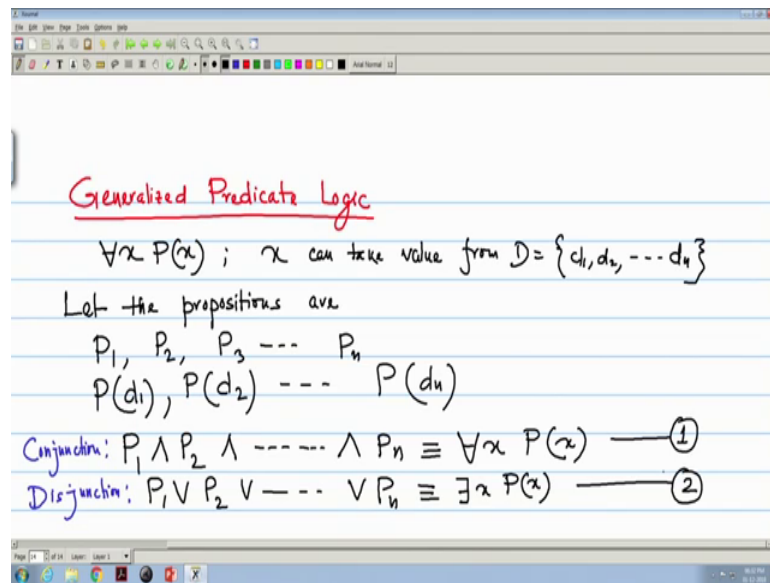 Journal
File Edit View Page Tools Options Help
Arial Normal 12
Generalized Predicate Logic
∀x P(x) ; x can take value from D = {d1, d2, --- dn}
Let the propositions are
P1, P2, P3 --- Pn
P(d1), P(d2) ---- P(dn)
Conjunction: P1 ∧ P2 ∧ ------ ∧ Pn ≡ ∀x P(x) —— 1
Disjunction: P1 ∨ P2 ∨ ---- ∨ Pn ≡ ∃x P(x) —— 2
Page 14 of 14 Layer: Layer 1